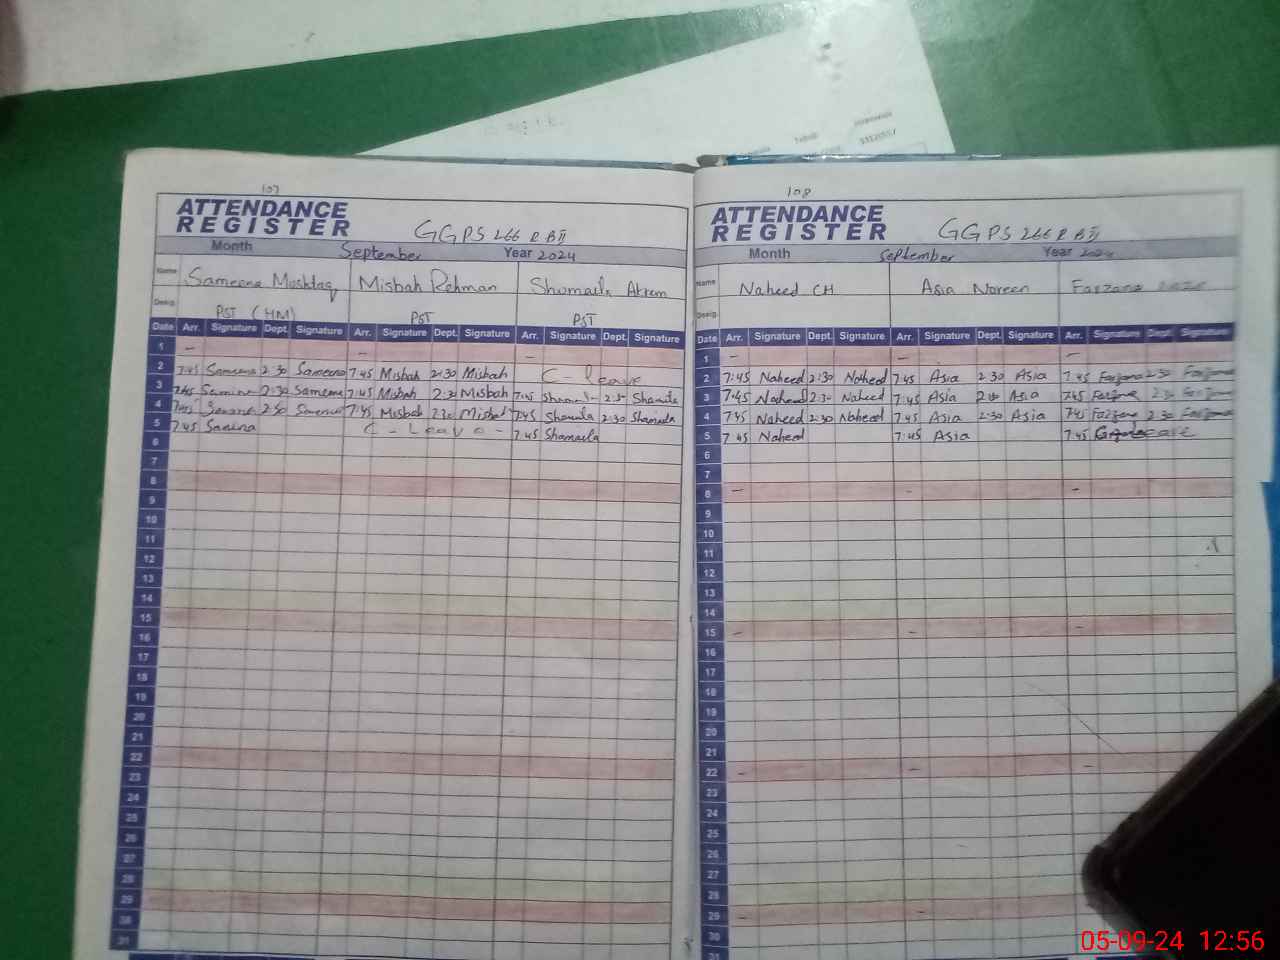 107
ATTENDANCE
REGISTER GGPS 266 R BII
Month September Year 2024
Name Sameena Mushtaq Misbah Rehman Shumaila Akrem
Desig. PST (HM) PST PST
Date Arr. Signature Dept. Signature Arr. Signature Dept. Signature Arr. Signature Dept. Signature
1 - - -
2 7:45 Sameena 2:30 Sameena 7:45 Misbah 2:30 Misbah C - leave
3 7:45 2:30 Sameena 7:45 Misbah 2:30 Misbah 7:45 2:30
4 7:45 2:30 7:45 Misbah 2:30 Misbah 7:45 2:30
5 7:45 Samina C - Leave - 7:45 Shamaila
6
7
8
9
10
11
12
13
14
15
16
17
18
19
20
21
22
23
24
25
26
27
28
29
30
31
108
ATTENDANCE
REGISTER GGPS 266 R BII
Month September Year 2024
Name Naheed CH Asia Noreen Farzana
Desig.
Date Arr. Signature Dept. Signature Arr. Signature Dept. Signature Arr. Signature Dept. Signature
1 - - -
2 7:45 Naheed 2:30 Naheed 7:45 Asia 2:30 Asia 7:45 Farzana 2:30 Farzana
3 7:45 Naheed 2:30 Naheed 7:45 Asia Asia 7:45 Farzana 2:30 Farzana
4 7:45 Naheed 2:30 Naheed 7:45 Asia 2:30 Asia 7:45 Farzana 2:30 Farzana
5 7:45 Naheed 7:45 Asia 7:45
6
7
8 - - -
9
10
11
12
13
14
15 - - -
16
17
18
19
20
21
22 - - -
23
24
25
26
27
28
29 - -
30
31
05-09-24 12:56